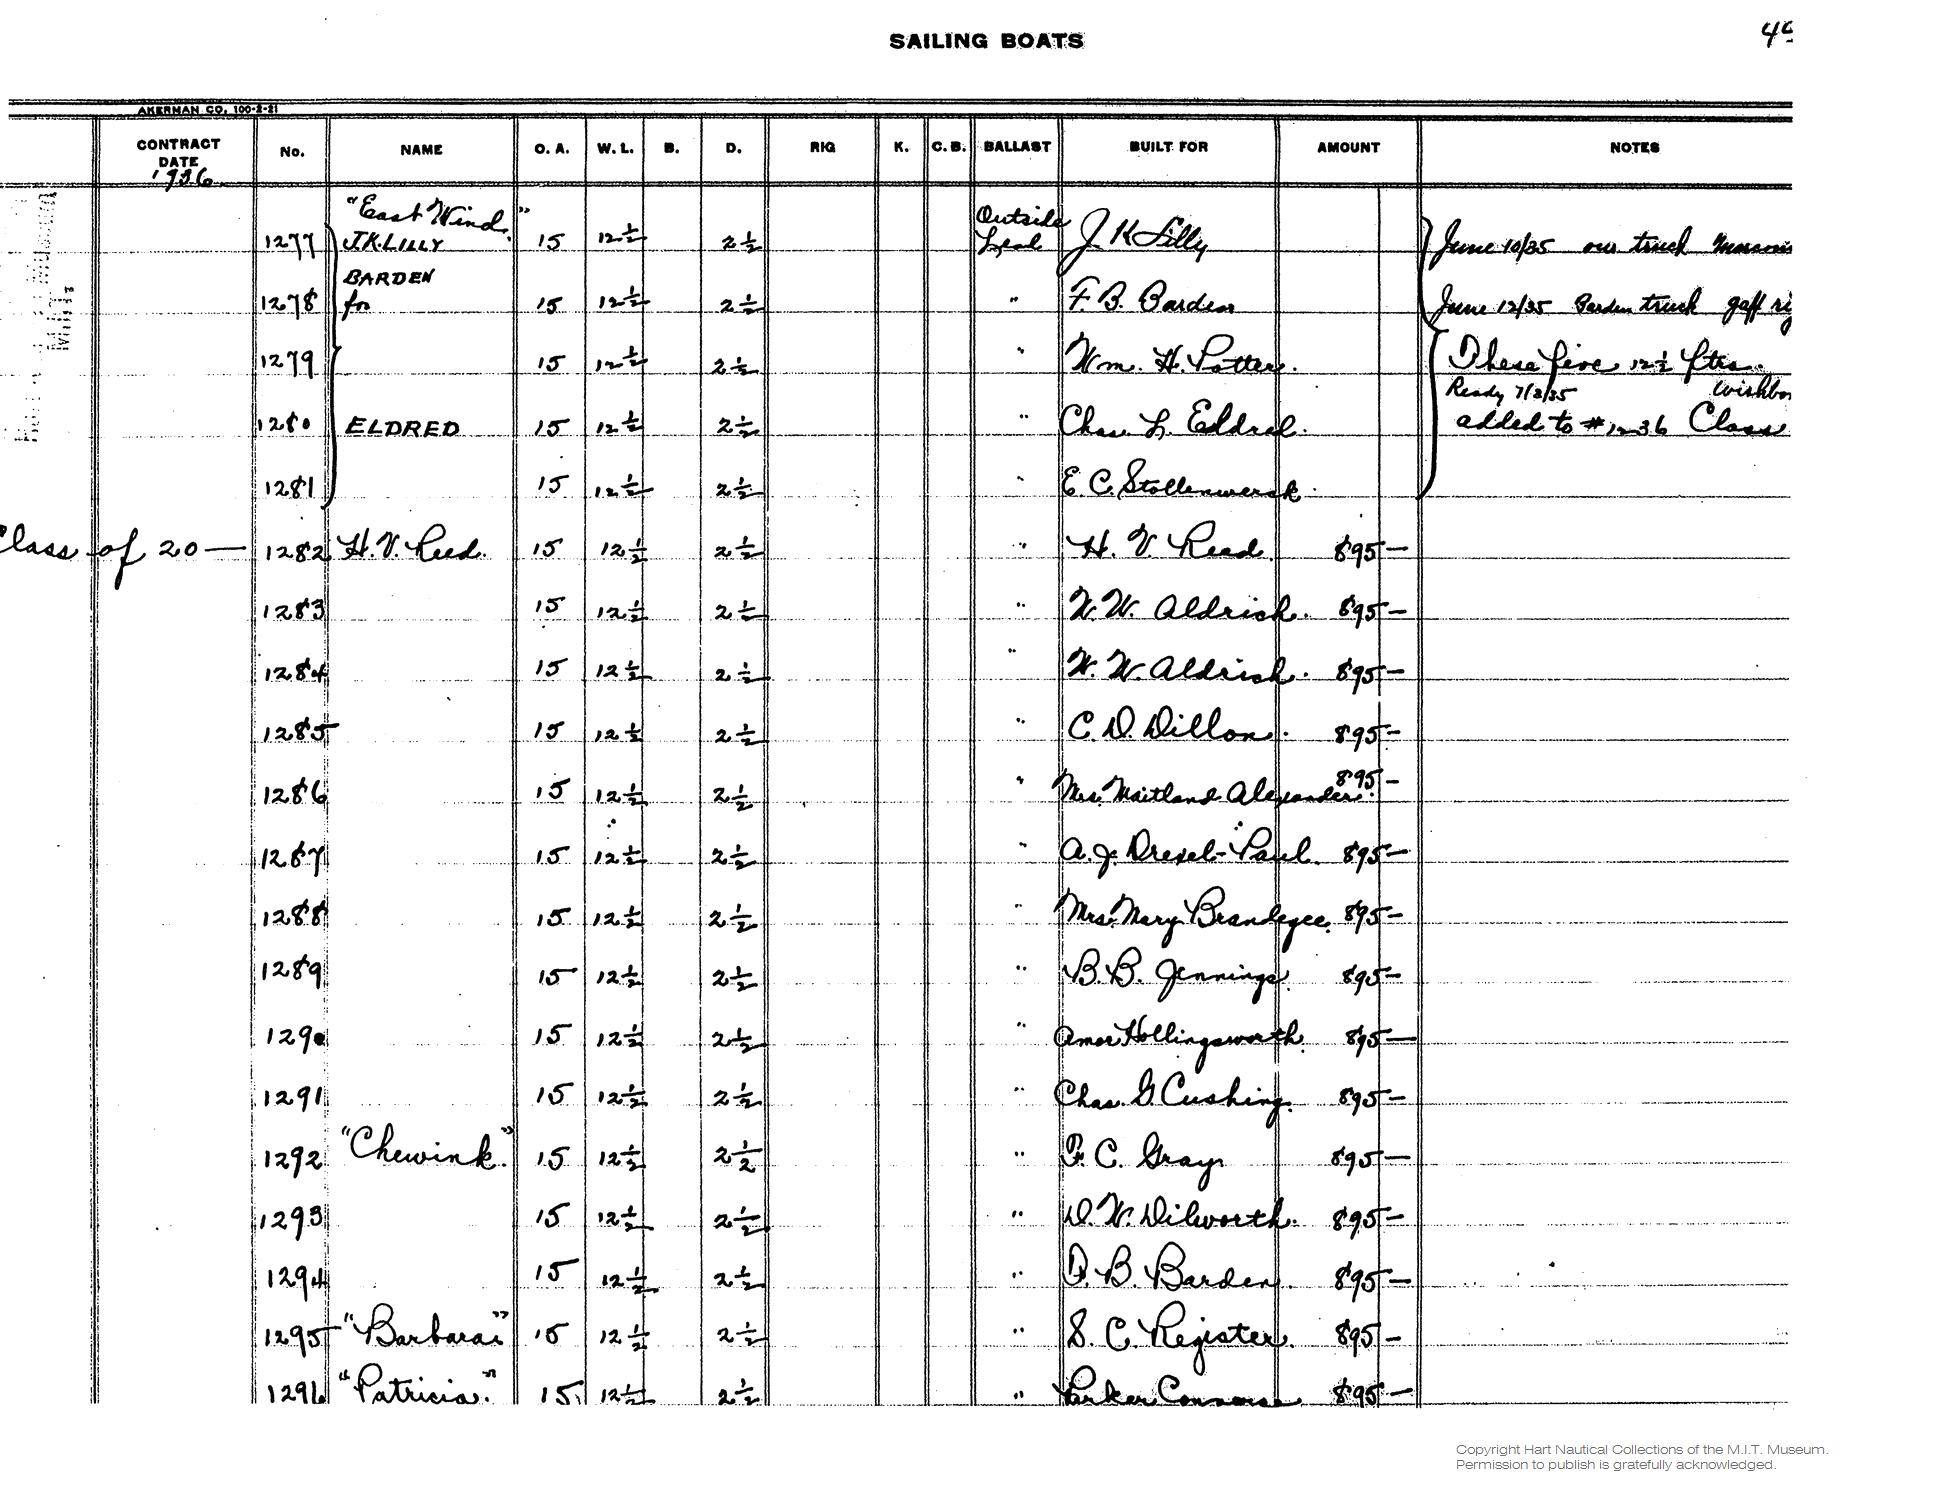 SAILING BOATS
AKERMAN CO. 100-2-21
CONTRACT DATE No. NAME O. A. W. L. B. D. RIG K. C. B. BALLAST BUILT FOR AMOUNT NOTES
1936
"East Wind" Outside
1277 J.K.LILLY 15 12½ 2½ Lead J K Lilly June 10/35 our truck
BARDEN
1278 for 15 12½ 2½ " F. B. Barden June 12/35 Barden truck gaff
1279 15 12½ 2½ " Wm. H. Potter. These five 12½ ftrs.
Ready 7/2/35
1280 ELDRED 15 12½ 2½ " Chas. L. Eldred. added to #1236 Class
1281 15 12½ 2½ " E. C. Stollenwerck.
Class of 20 — 1282 H. V. Reed. 15 12½ 2½ " H. V. Read 895 —
1283 15 12½ 2½ " W. W. Aldrich. 895 —
1284 15 12½ 2½ " W. W. Aldrich. 895 —
1285 15 12½ 2½ " C. D. Dillon. 895 —
1286 15 12½ 2½ " Mrs. Maitland Alexander. 895 —
1287 15 12½ 2½ " A. J. Drexel-Paul. 895 —
1288 15 12½ 2½ " Mrs. Mary Brandegee. 895 —
1289 15 12½ 2½ " B. B. Jennings. 895 —
1290 15 12½ 2½ " Amor Hollingsworth. 895 —
1291 15 12½ 2½ " Chas. G Cushing. 895 —
1292 "Chewink." 15 12½ 2½ " F. C. Gray 895 —
1293 15 12½ 2½ " D. W. Dilworth. 895 —
1294 15 12½ 2½ " F. B. Barden. 895 —
1295 "Barbara" 15 12½ 2½ " S. C. Register. 895 —
1296 "Patricia." 15 12½ 2½ " Parker 895 —
Copyright Hart Nautical Collections of the M.I.T. Museum.
Permission to publish is gratefully acknowledged.